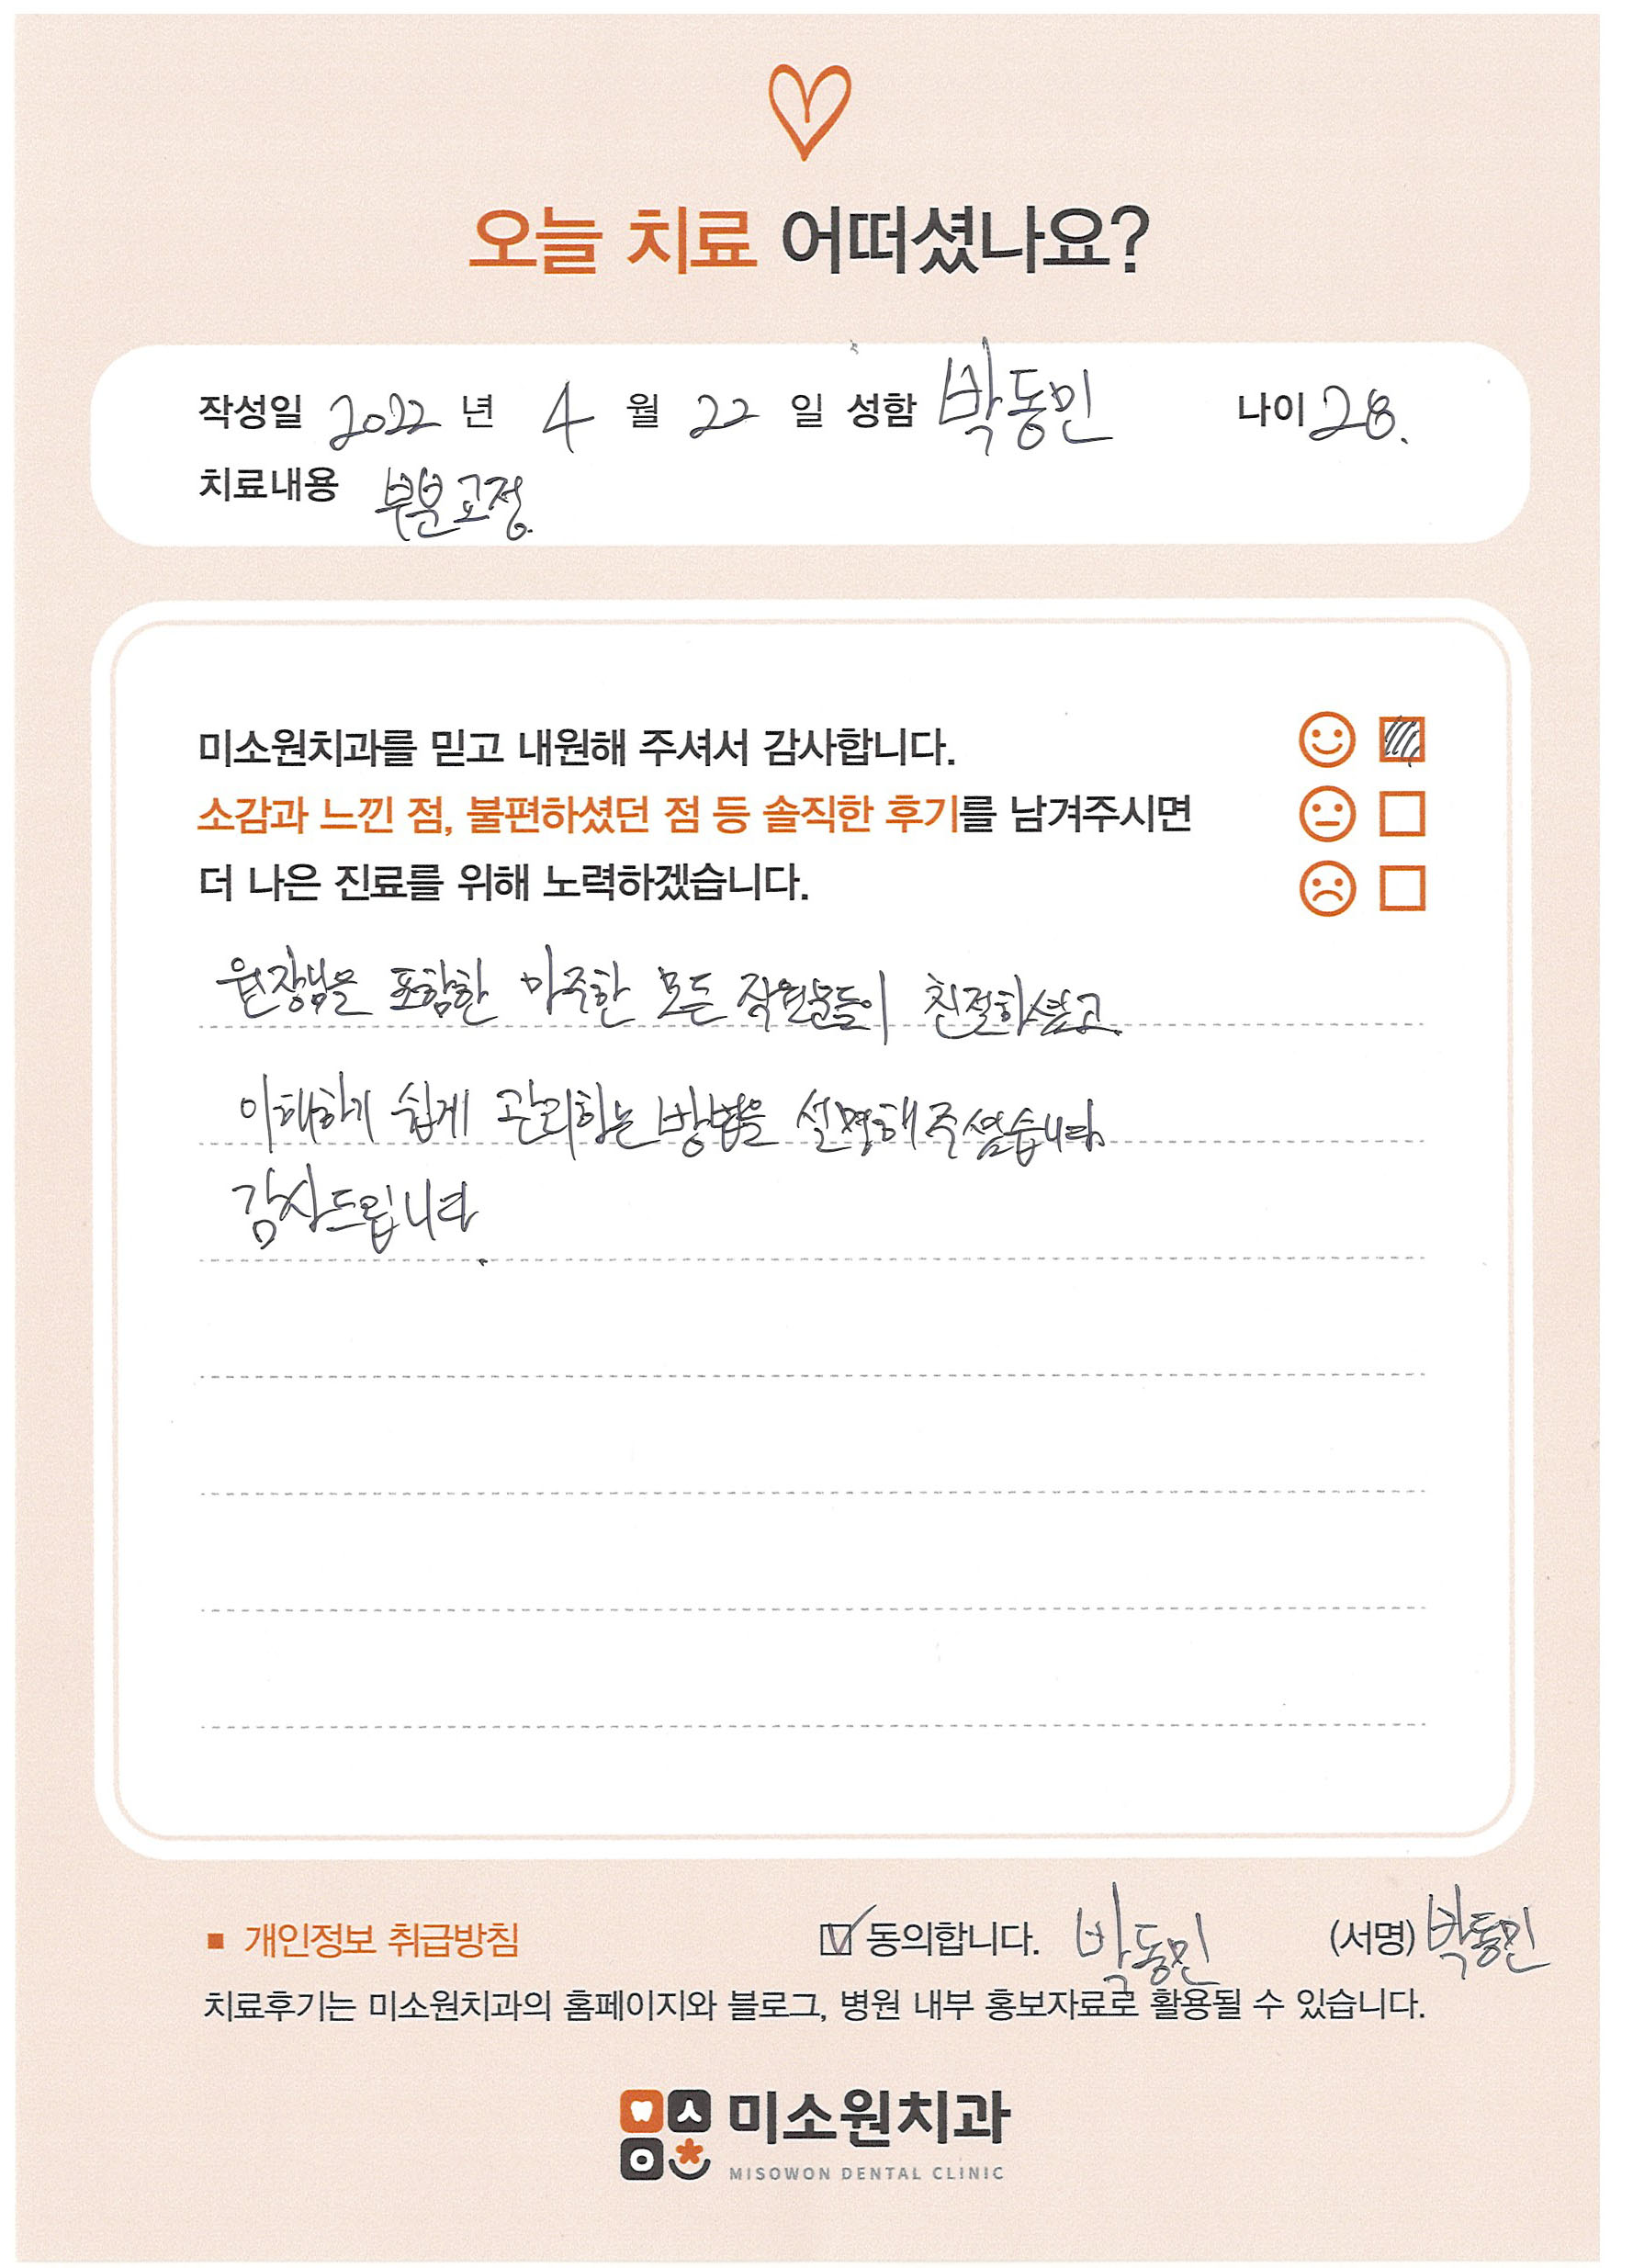 오늘 치료 어떠셨나요?
작성일 2022 년 4 월 22 일 성함 박동민 나이 28.
치료내용 부분교정.
미소원치과를 믿고 내원해 주셔서 감사합니다.
소감과 느낀 점, 불편하셨던 점 등 솔직한 후기를 남겨주시면
더 나은 진료를 위해 노력하겠습니다.
원장님을 포함한 마주한 모든 직원분들이 친절하셨고
이해하기 쉽게 관리하는 방법을 설명해주셨습니다.
감사드립니다.
개인정보 취급방침 동의합니다. 박동민 (서명) 박동민
치료후기는 미소원치과의 홈페이지와 블로그, 병원 내부 홍보자료로 활용될 수 있습니다.
미소원치과
MISOWON DENTAL CLINIC